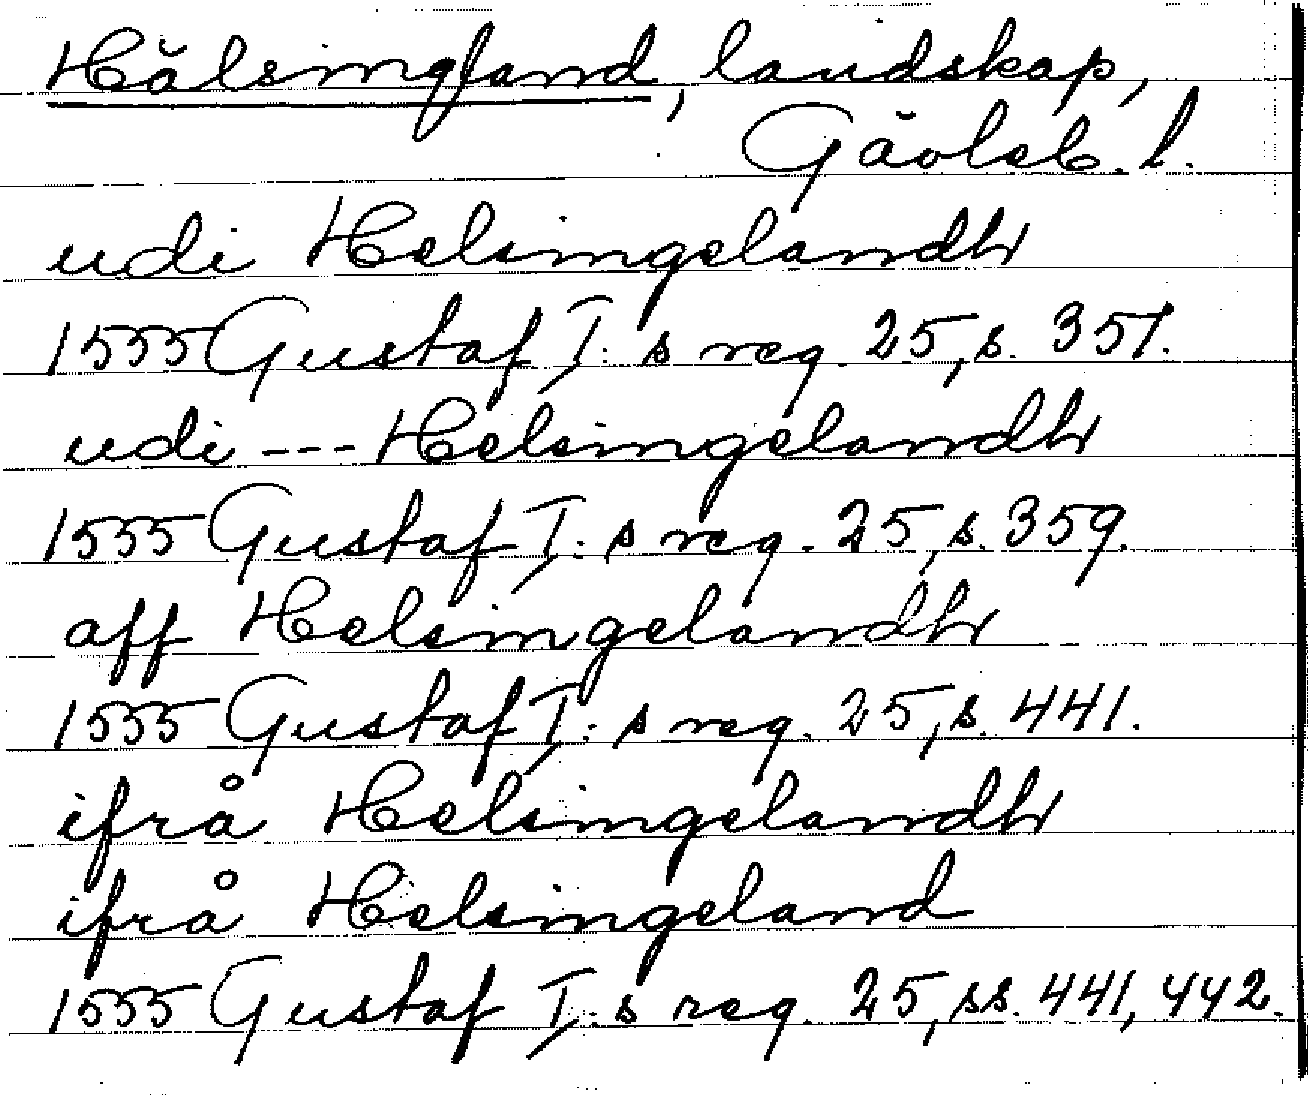 Hälsingland, landskap,
Gävleb. l.
udi Helsingelandh
1555 Gustaf I:s reg. 25, s. 351.
udi --- Helsingelandh
1555 Gustaf I:s reg. 25, s. 359.
aff Helsingelandh
1555 Gustaf I:s reg. 25, s. 441.
ifrå Helsingelandh
ifrå Helsingeland
1555 Gustaf I:s reg. 25, ss. 441, 442.